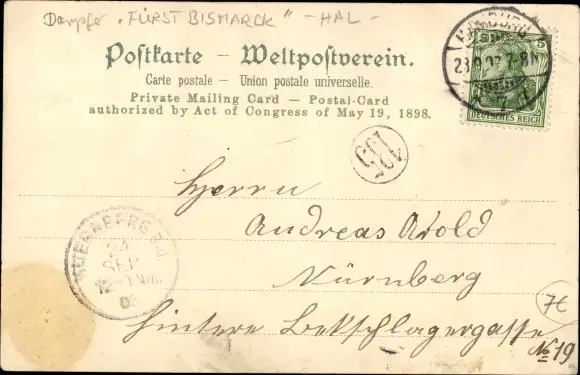 Dampfer „FÜRST BISMARCK" - HAL -
Postkarte – Weltpostverein.
Carte postale – Union postale universelle.
Private Mailing Card – Postal-Card
authorized by Act of Congress of May 19, 1898.
HAMBURG
7-8 N
7
5
DEUTSCHES REICH
155
Herrn
Andreas Arold
Nürnberg
Hintere Ledschlagergasse
№ 19
NUERNBERG
24
SEP
7€